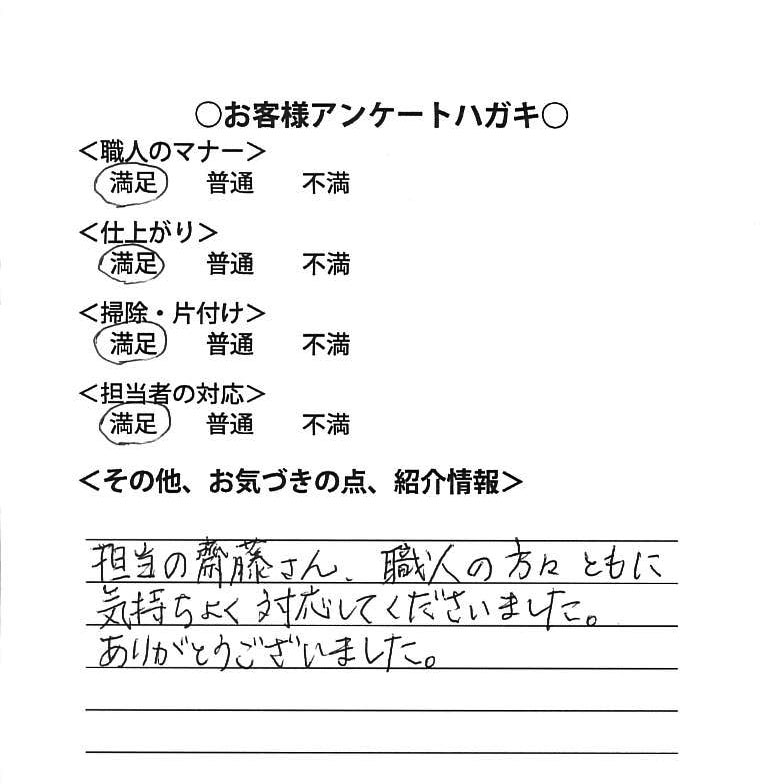 ○お客様アンケートハガキ○
＜職人のマナー＞
満足 普通 不満
＜仕上がり＞
満足 普通 不満
＜掃除・片付け＞
満足 普通 不満
＜担当者の対応＞
満足 普通 不満
＜その他、お気づきの点、紹介情報＞
担当の齋藤さん、職人の方々ともに
気持ちよく対応してくださいました。
ありがとうございました。